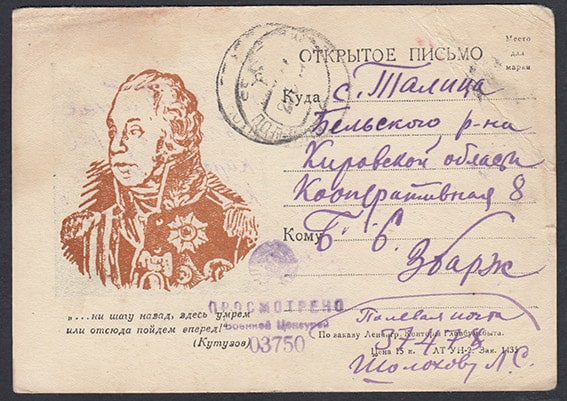 Место
для
марки
ОТКРЫТОЕ ПИСЬМО
Куда
с. Талица
Бельского р-на
Кировской област
Кооперативная 8
Кому
Б. С.
Збарж
„... ни шагу назад, здесь умрем
или отсюда пойдем вперед!"
(Кутузов)
ПРОСМОТРЕНО
Военной Цензурой
03750
Полевая почта
По заказу Ленингр. Конторы Главбумсбыта.
37478
Цена 15 к. АТ УН-2. Зак. 1435
Шолохову Л. С.